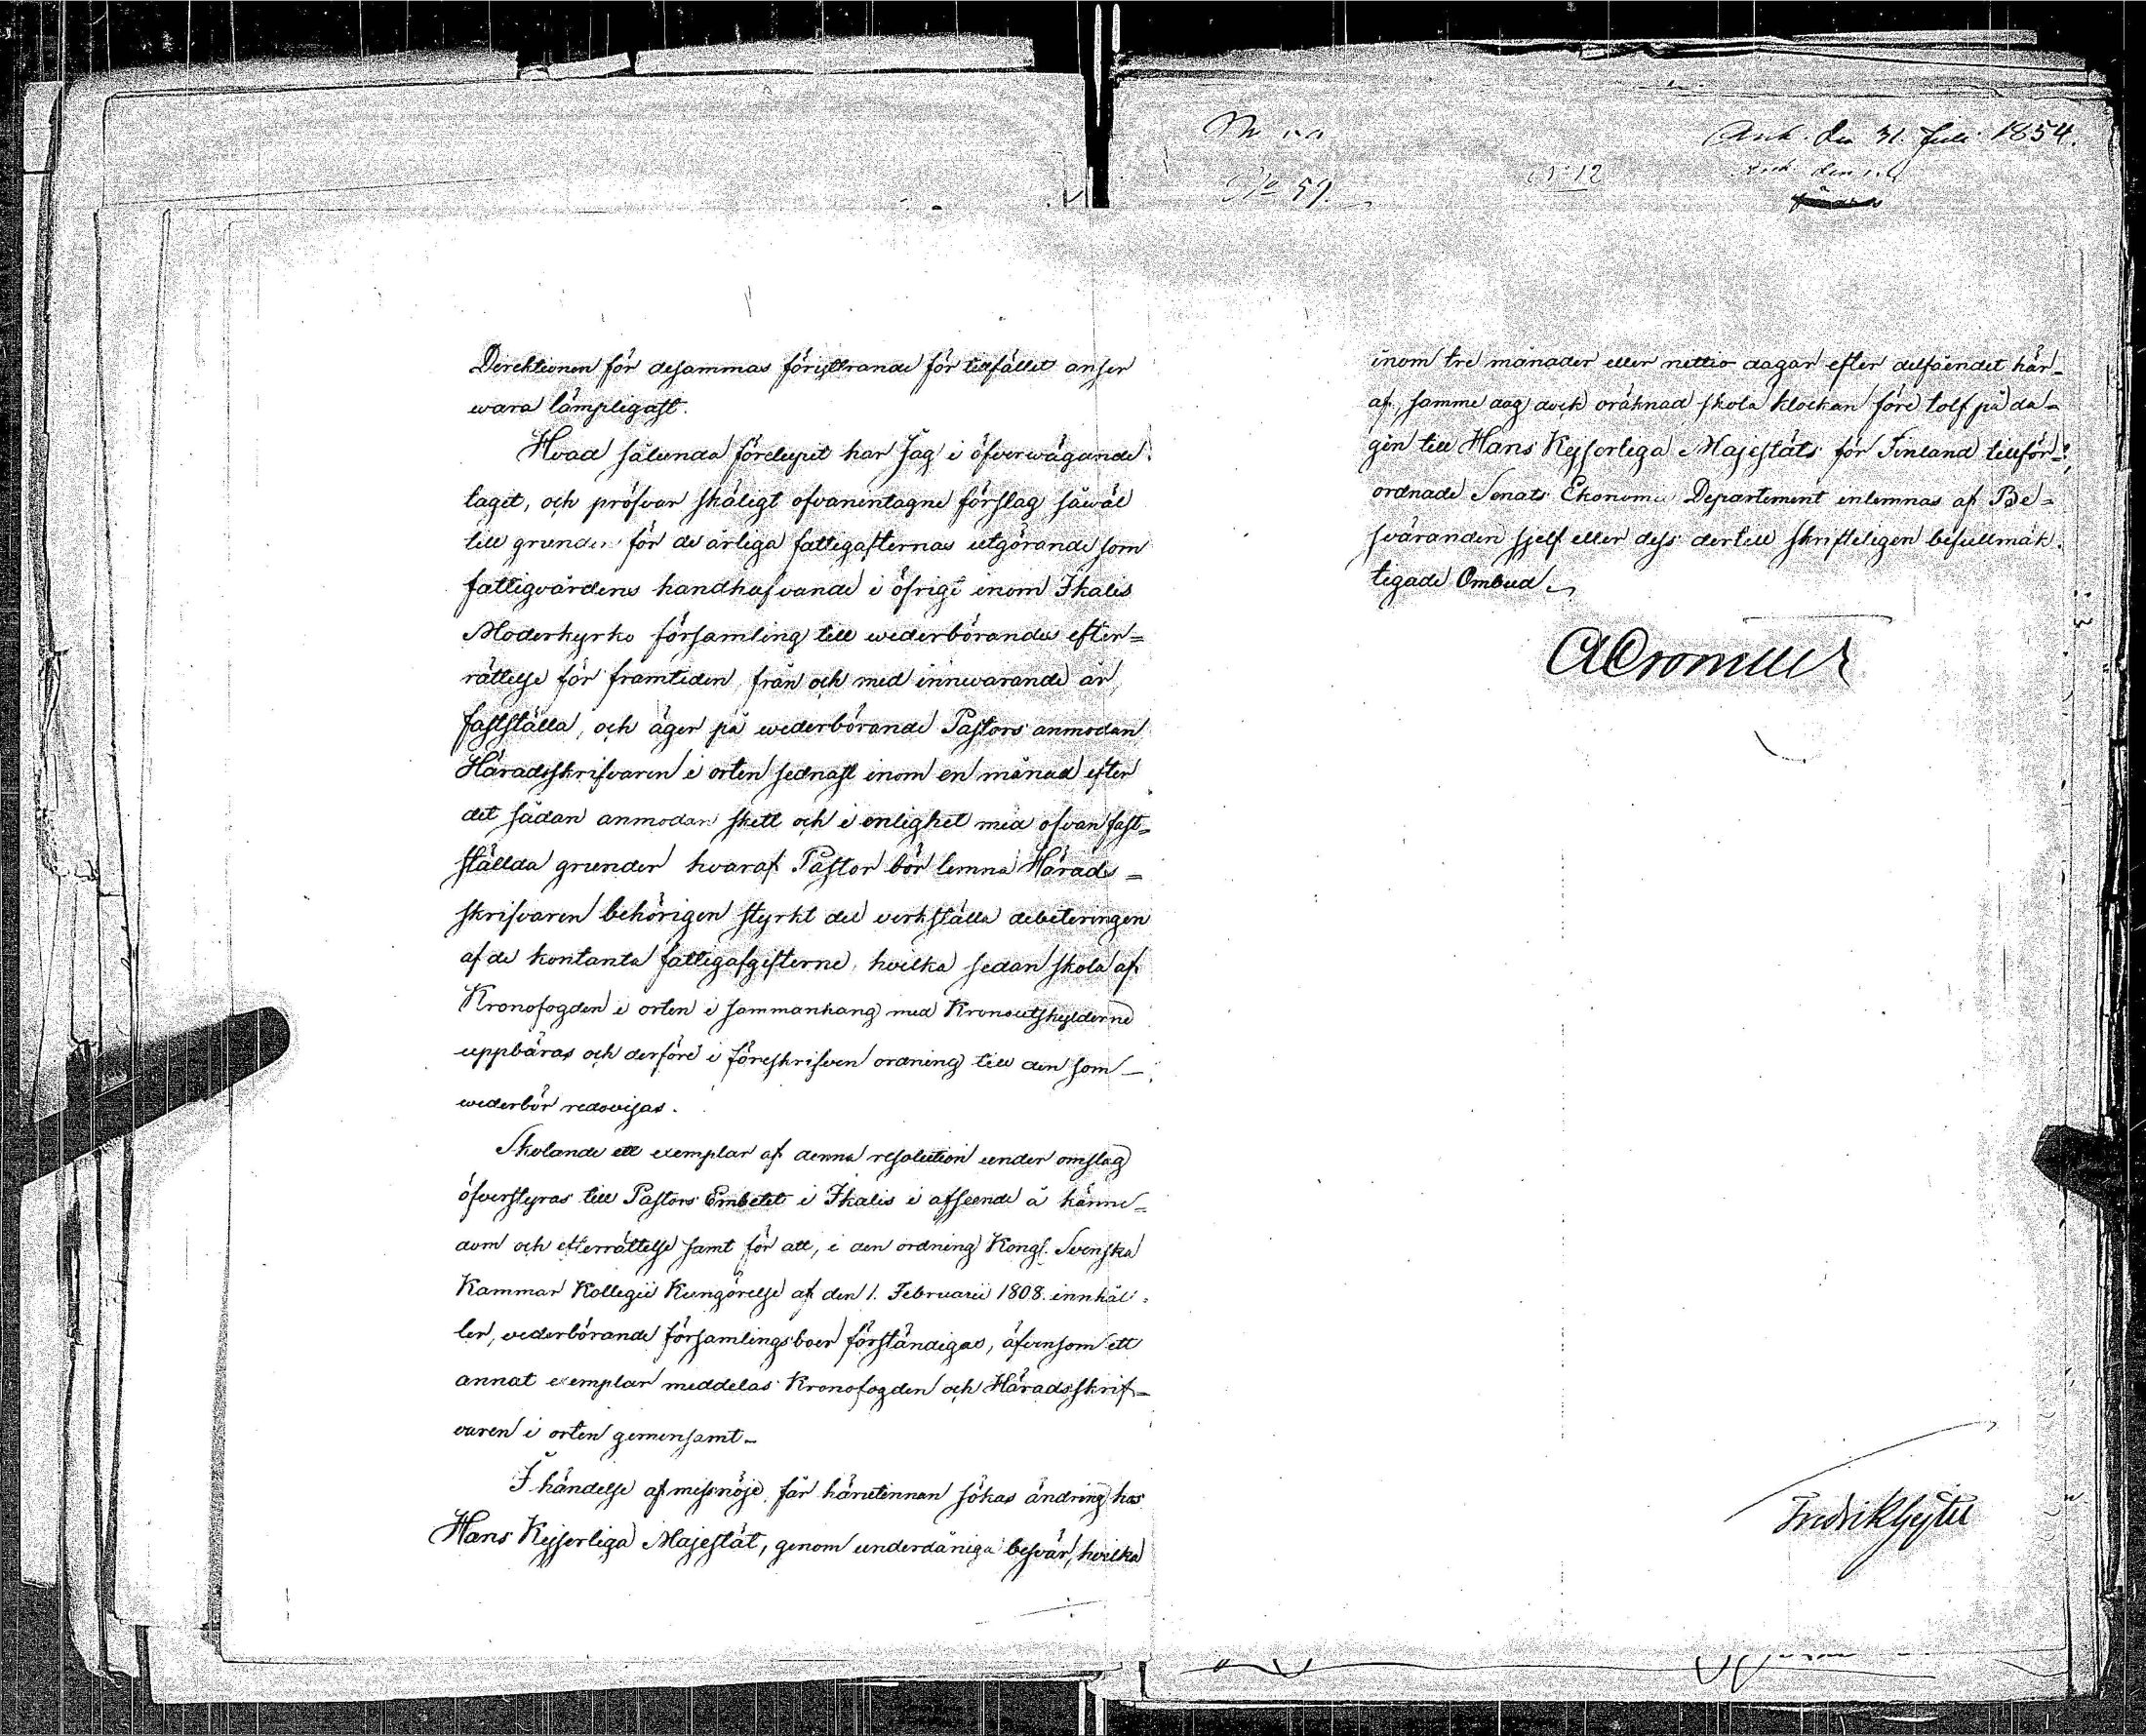 Direktionen för desammas föryttrande för tillfället anser
wara lämpligast.
Hvad sålunda förelupit har Jag i öfverwägande
taget, och pröfvar skäligt ofvanintagne förslag såwäl
till grunder för de årliga fattigafternas utgörande som
fattigvårdens handhafvande i öfrigt inom Ikalis
Moderkyrko församling till wederbörandes efter=
rättelse för framtiden, från och med innewarande år,
fastställa, och äger på wederbörande Pastors anmodan
Häradsskrifvaren i orten sednast inom en månad efter
det sådan anmodan skett och i enlighet med ofvan fast=
ställda grunder hvaraf Pastor bör lemna Härads=
skrifvaren behörigen styrkt del verkställa debiteringen
af de kontanta fattigafgifterne, hvilka sedan skola af
Kronofogden i orten i sammanhang med Kronoutskylderne
uppbäras och derföre i föreskrifven ordning till den som
wederbör redovisas.
Skolande ett exemplar af denna resolution under omslag
öfverstyras till Pastors Embetet i Ikalis i afseende å känne=
dom och efterrättelse samt för att, i den ordning Kongl. Svenska
Kammar Kollegii Kungörelse af den 1. Februarii 1808. innhål=
ler, vederbörande församlingsboer förständigas, äfvensom ett
annat exemplar meddelas Kronofogden och Häradsskrif=
varen i orten gemensamt.
I händelse af missnöje, får härutinnan sökas ändring hos
Hans Kejserliga Majestät, genom underdåniga besvär, hvilka
No 59.
12
Ank. den 31. Juli 1854.
Ank. den
inom tre månader eller nettio dagar efter delfåendet här=
af, samme dag dock oräknad skola klockan före tolf på da=
gen till Hans Kejserliga Majestäts för Finland tillför=
ordnade Senats Ekonomie Departement inlemnas af Be=
sväranden sjelf eller dess dertill skrifteligen befullmäk=
tigade Ombud.